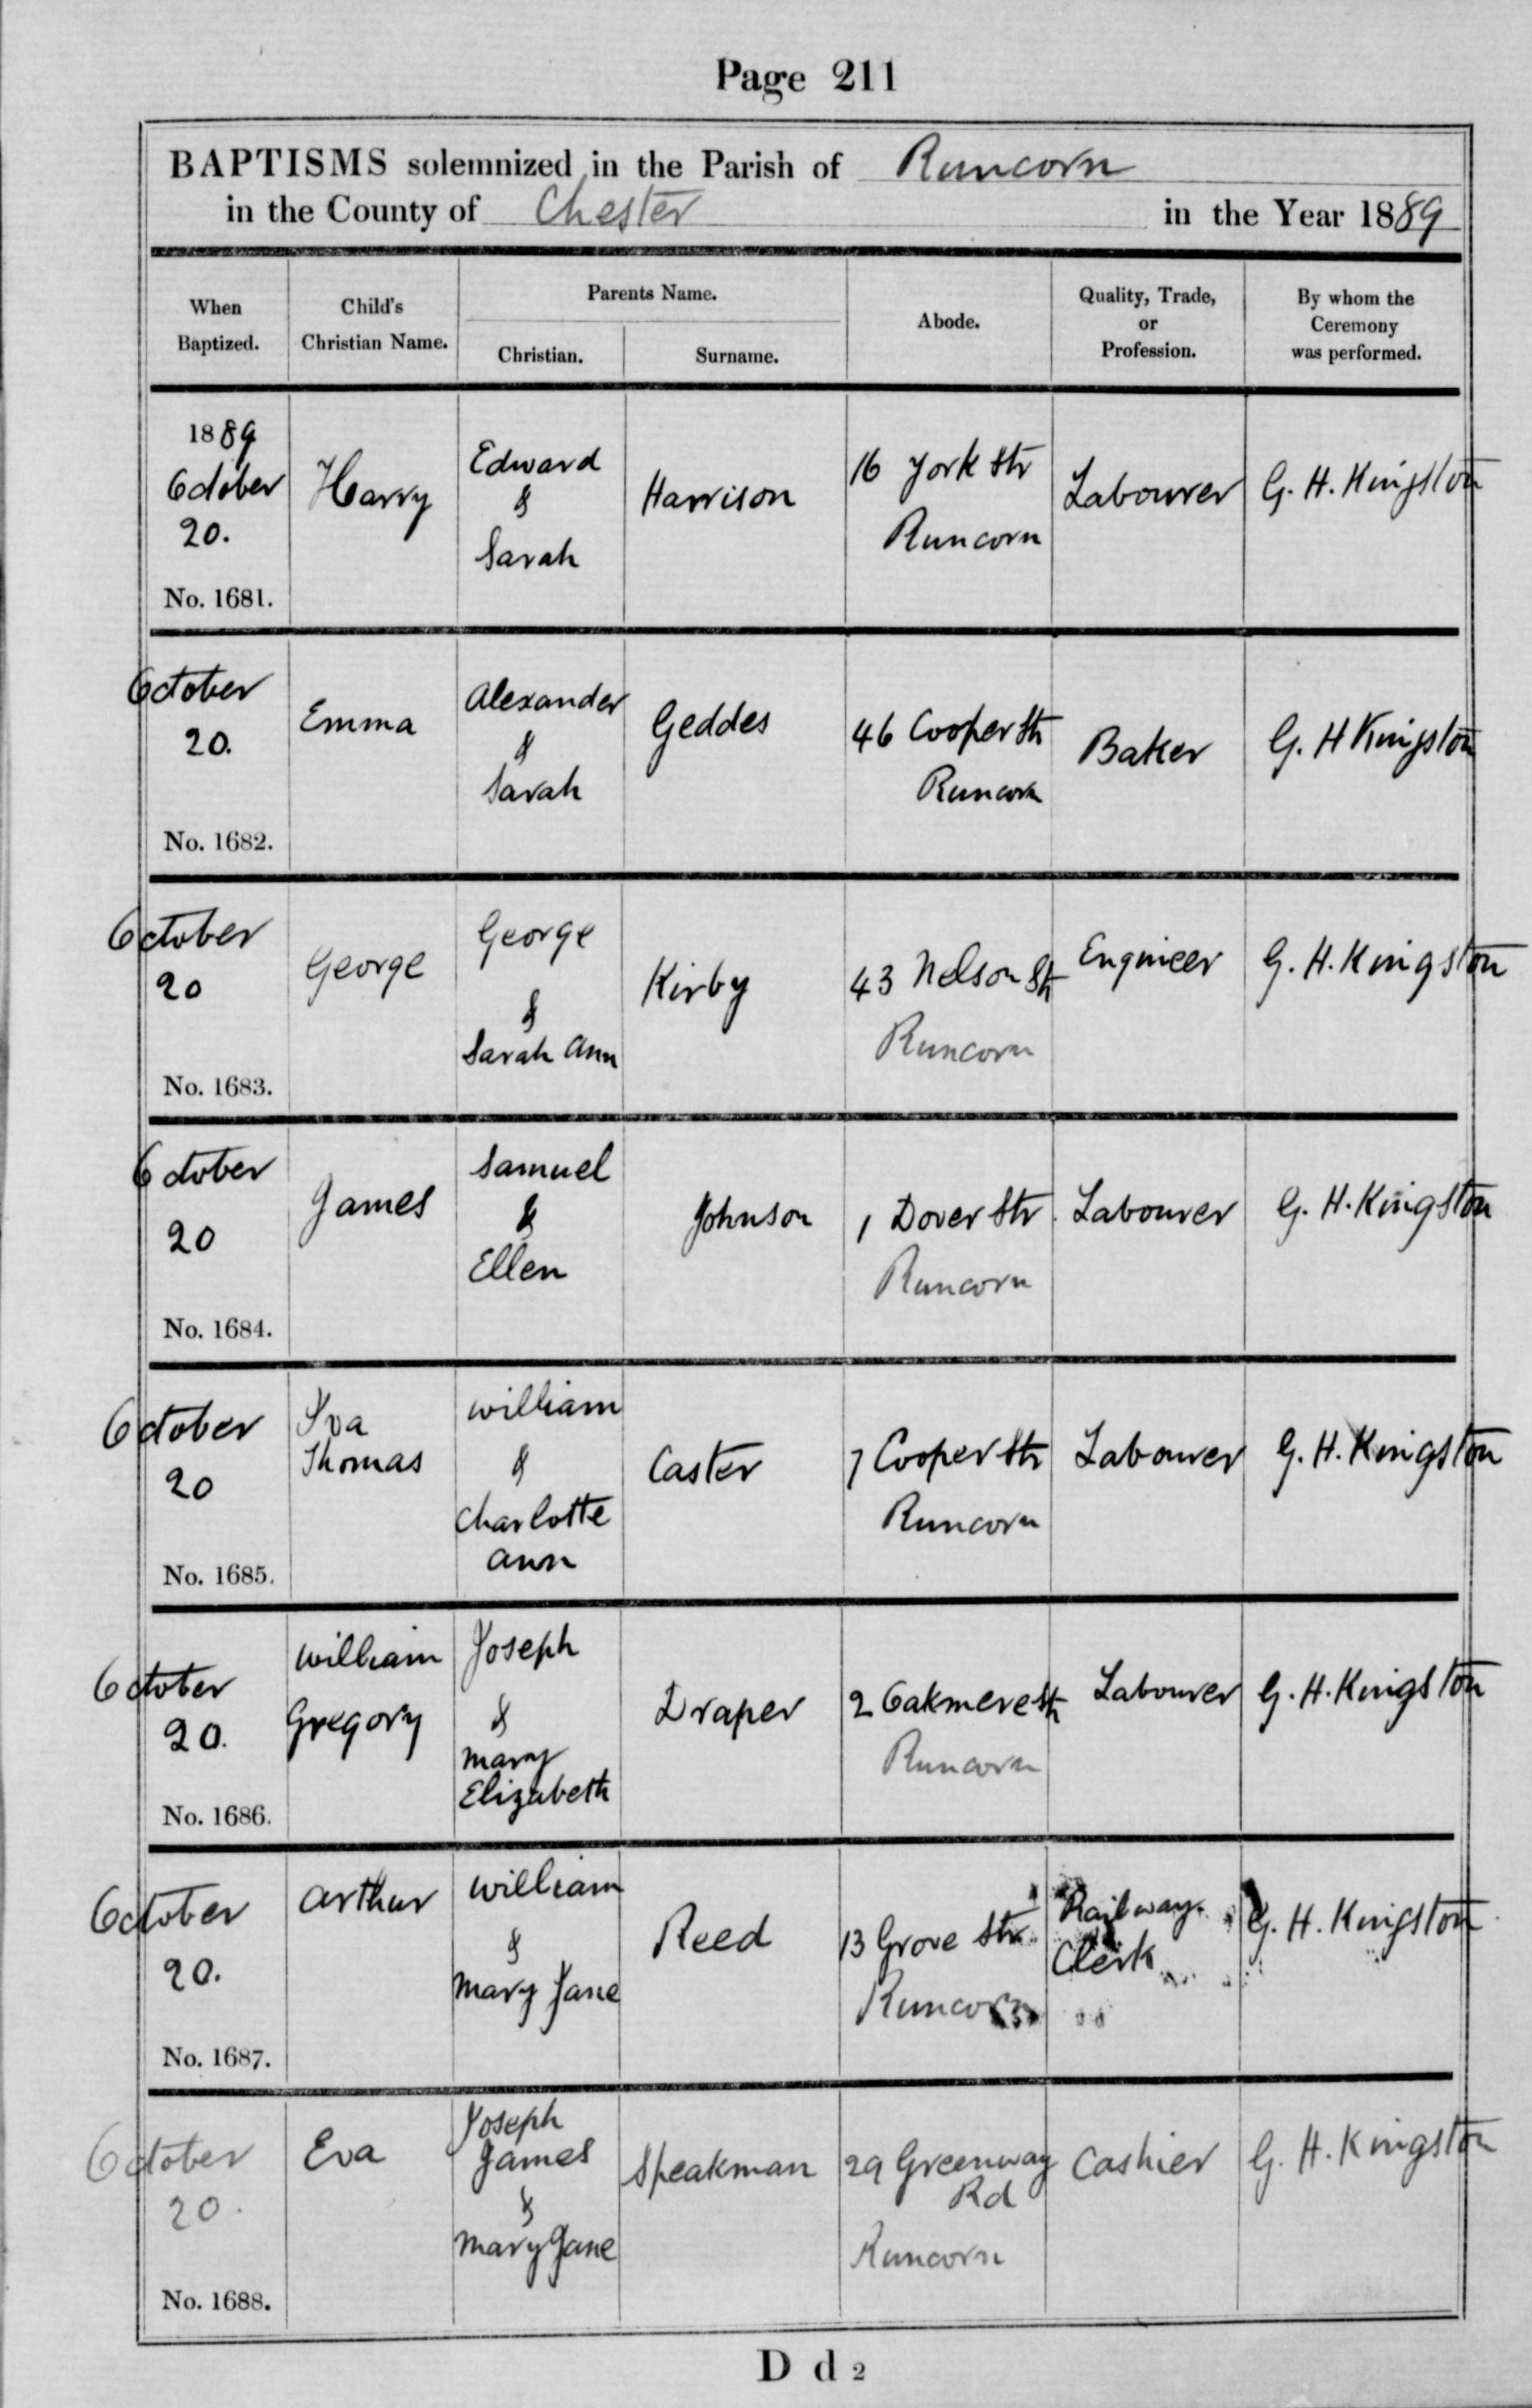 Page 211
BAPTISMS solemnized in the Parish of Runcorn
in the County of Chester in the Year 1889
When Baptized.
Child's Christian Name.
Parents Name.
Christian.
Surname.
Abode.
Quality, Trade, or Profession.
By whom the Ceremony was performed.
1889
October
20.
No. 1681.
Harry
Edward
&
Sarah
Harrison
16 York Str
Runcorn
Labourer
G. H. Kingston
October
20.
No. 1682.
Emma
Alexander
&
Sarah
Geddes
46 Cooper Str
Runcorn
Baker
G. H Kingston
October
20
No. 1683.
George
George
&
Sarah Ann
Kirby
43 Nelson St
Runcorn
Engineer
G. H. Kingston
October
20
No. 1684.
James
Samuel
&
Ellen
Johnson
1 Dover Str
Runcorn
Labourer
G. H. Kingston
October
20
No. 1685.
Iva
Thomas
William
&
Charlotte
Ann
Caster
7 Cooper Str
Runcorn
Labourer
G. H. Kingston
October
20.
No. 1686.
William
Gregory
Joseph
&
Mary
Elizabeth
Draper
2 Oakmere St
Runcorn
Labourer
G. H. Kingston
October
20.
No. 1687.
Arthur
William
&
Mary Jane
Reed
13 Grove Str
Runcorn
Railway
Clerk
G. H. Kingston
October
20.
No. 1688.
Eva
Joseph
James
&
Mary Jane
Speakman
29 Greenway
Rd
Runcorn
Cashier
G. H. Kingston
D d 2